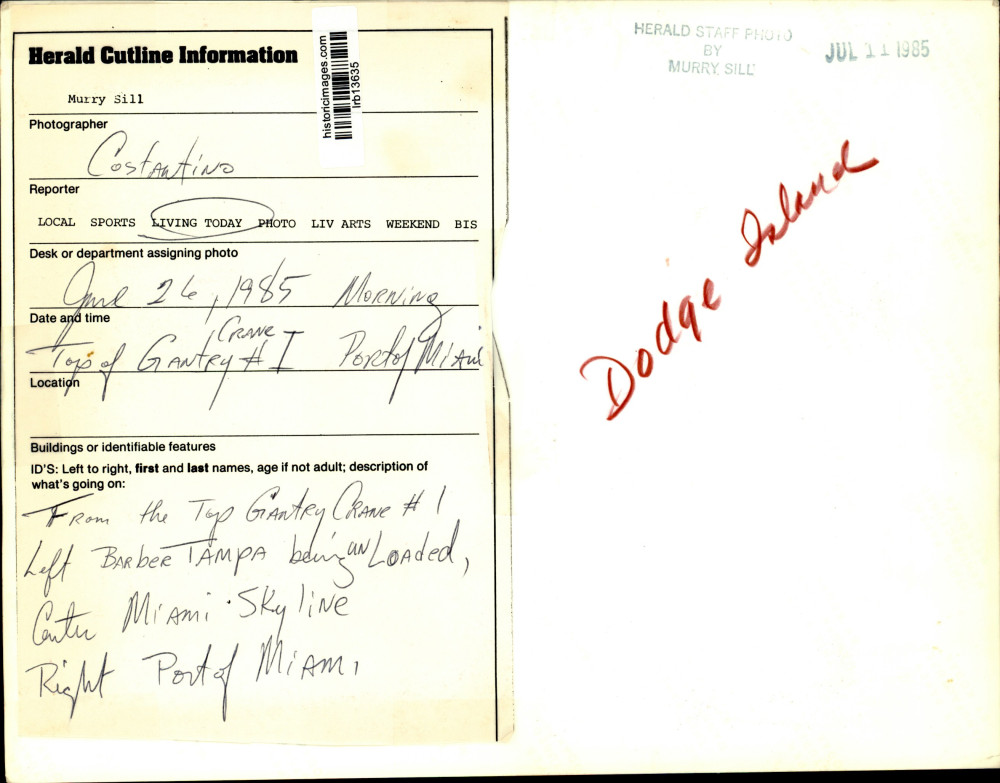 Herald Cutline Information
historicimages.com
lrb13635
Murry Sill
Photographer
Costantino
Reporter
LOCAL SPORTS LIVING TODAY PHOTO LIV ARTS WEEKEND BIS
Desk or department assigning photo
June 26, 1985 Morning
Date and time
Top of Gantry Crane # I Port of Miami
Location
Buildings or identifiable features
ID'S: Left to right, first and last names, age if not adult; description of
what's going on:
From the Top Gantry Crane # 1
Left Barber Tampa being unLoaded,
Center Miami Skyline
Right Port of Miami
HERALD STAFF PHOTO
BY
MURRY SILL
JUL 11 1985
Dodge Island